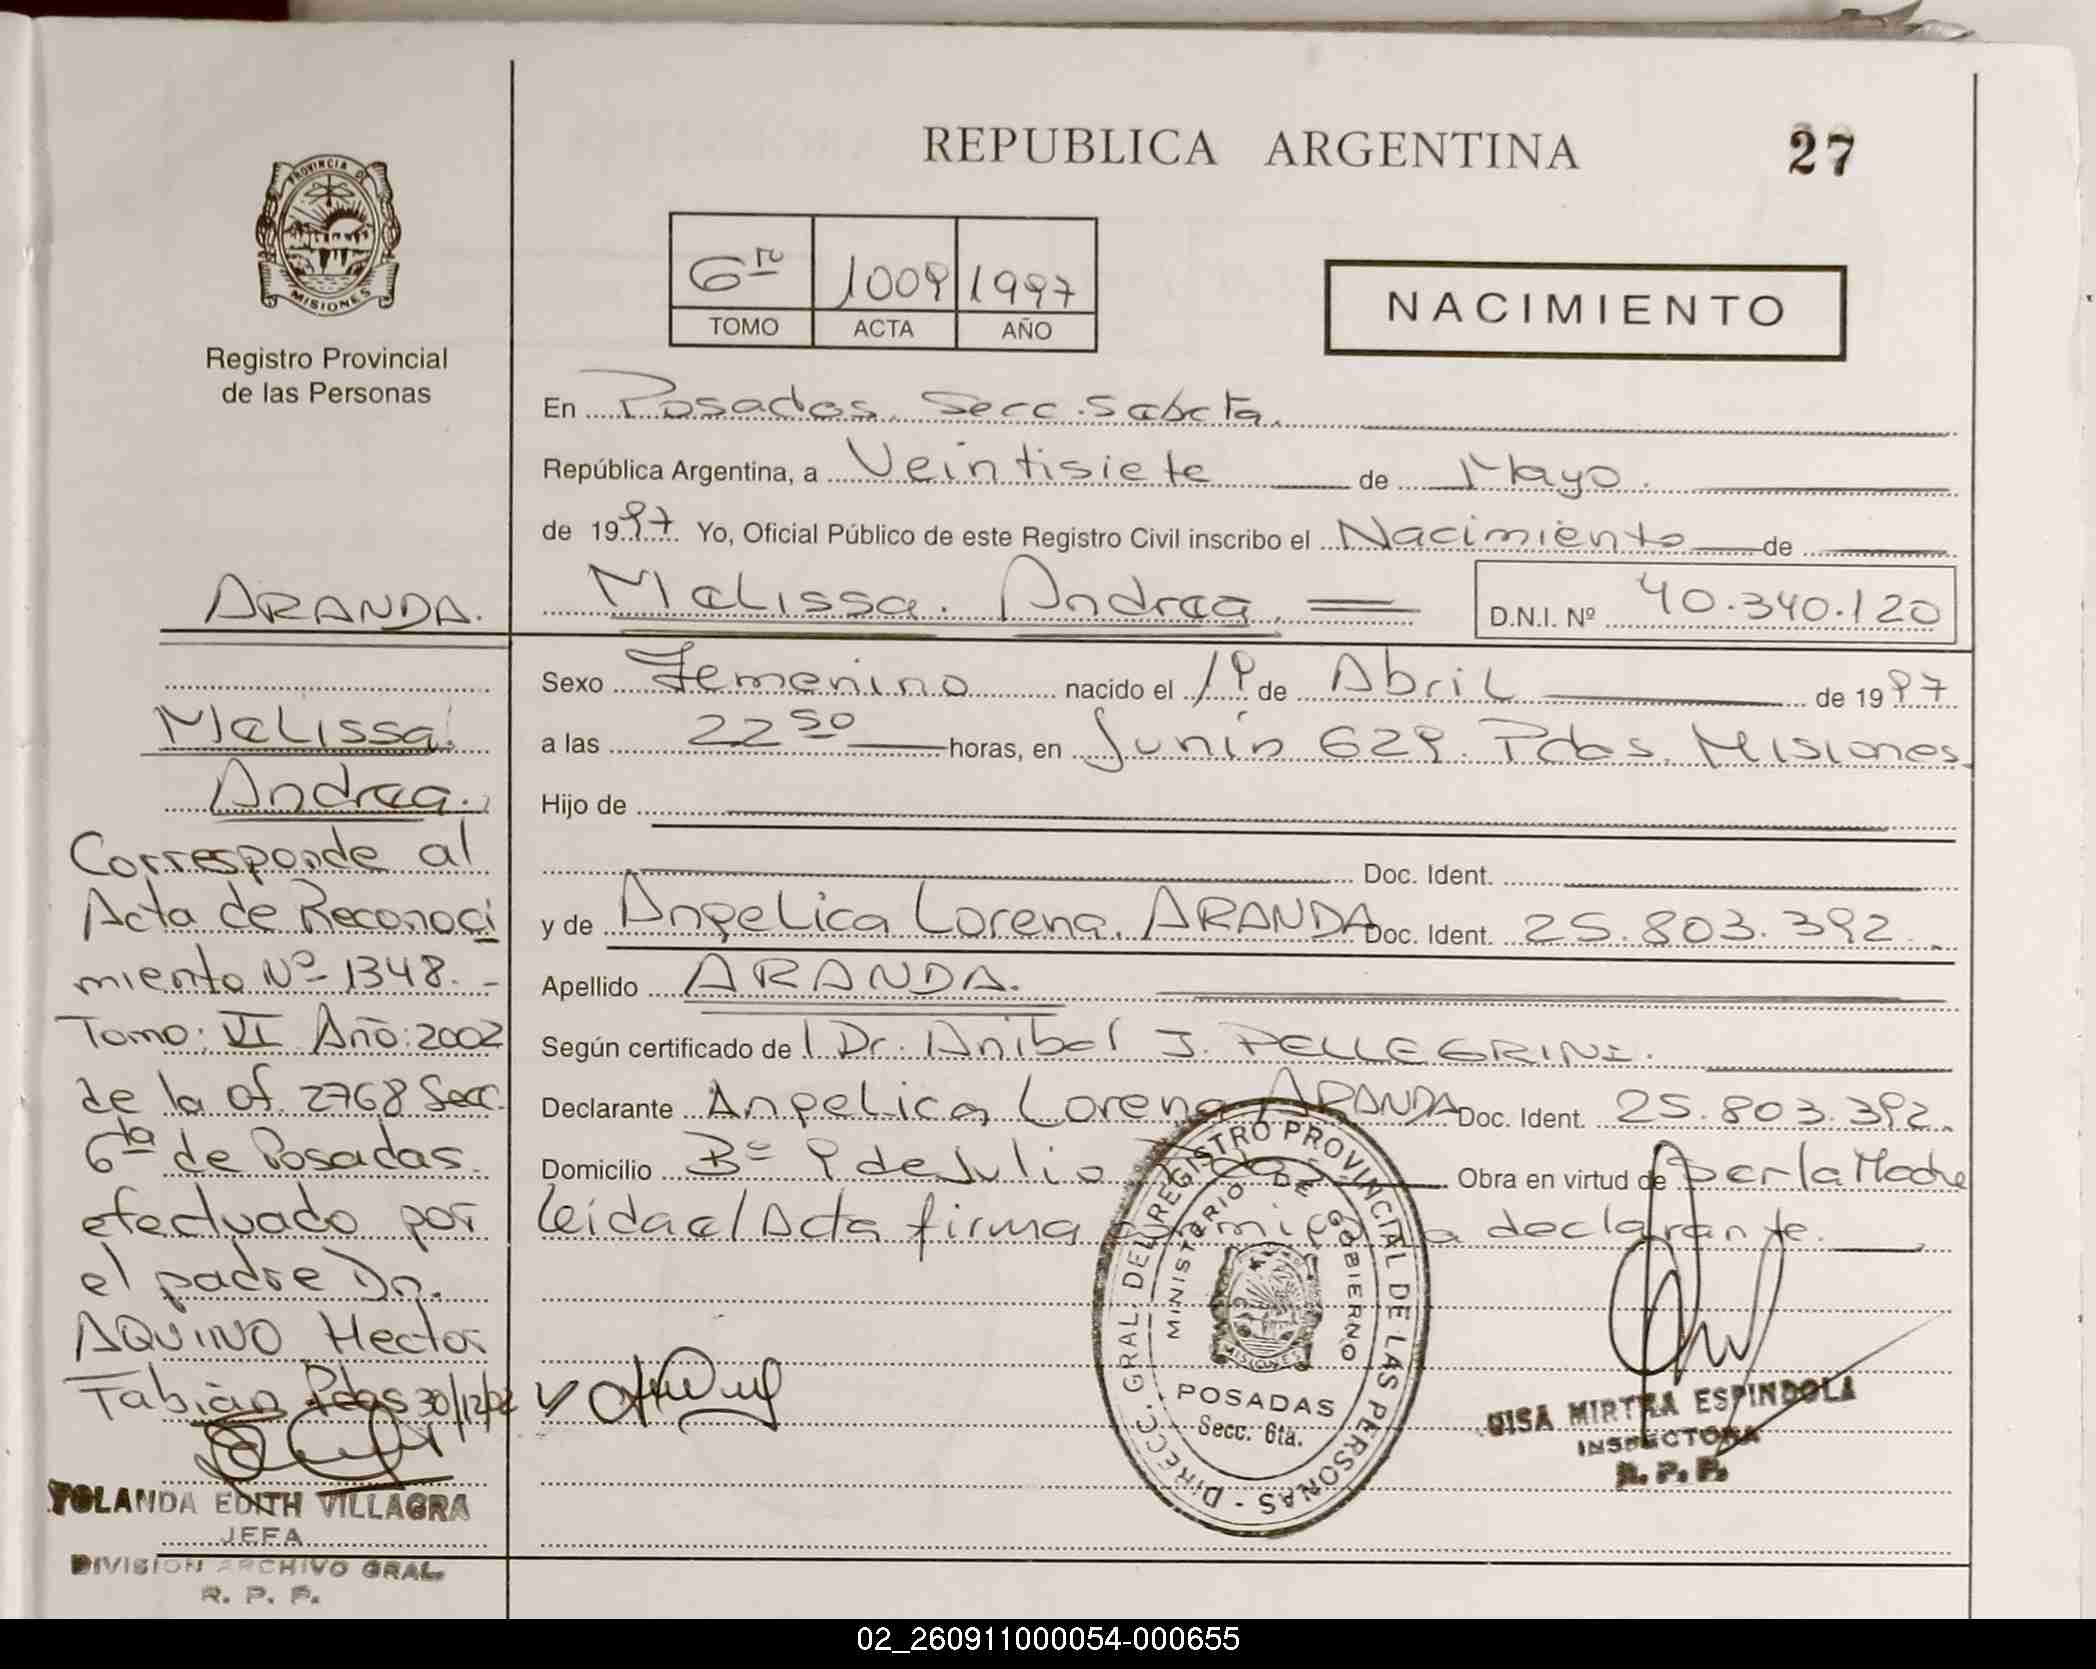 REPUBLICA ARGENTINA
27
PROVINCIA DE
MISIONES
Registro Provincial
de las Personas
6to 1009 1997
TOMO ACTA AÑO
NACIMIENTO
En Posadas. Secc. Sexta.
República Argentina, a Veintisiete de Mayo.
de 1997 Yo, Oficial Público de este Registro Civil inscribo el Nacimiento de
Melissa. Andrea. D.N.I. Nº 40.340.120
Sexo Femenino nacido el 1º de Abril de 1997
a las 22 50 horas, en Junín 629. Pdas. Misiones.
Hijo de
Doc. Ident.
y de Angelica Lorena. ARANDA Doc. Ident. 25.803.392.
Apellido ARANDA.
Según certificado del Dr. Anibal J. PELLEGRINI.
Declarante Angelica Lorena ARANDA Doc. Ident. 25.803.392.
Domicilio Bº 9 de Julio Pdas. Obra en virtud de ser la Madre
leída el Acta firma la declarante.
ARANDA.
Melissa.
Andrea.
Corresponde al
Acta de Reconoci
miento Nº 1348.-
Tomo: VI Año: 2002
de la of. 2768 Secc.
6ta de Posadas.
efectuado por
el padre Dn.
AQUINO Hector
Fabián Pdas 30/12/02
YOLANDA EDITH VILLAGRA
JEFA
DIVISION ARCHIVO GRAL.
R. P. P.
DIRECC. GRAL. DEL REGISTRO PROVINCIAL DE LAS PERSONAS -
MINISTERIO DE GOBIERNO
MISIONES
POSADAS
Secc. 6ta.
MIRTHA ESPINDOLA
INSPECTORA
R. P. P.
02_260911000054-000655